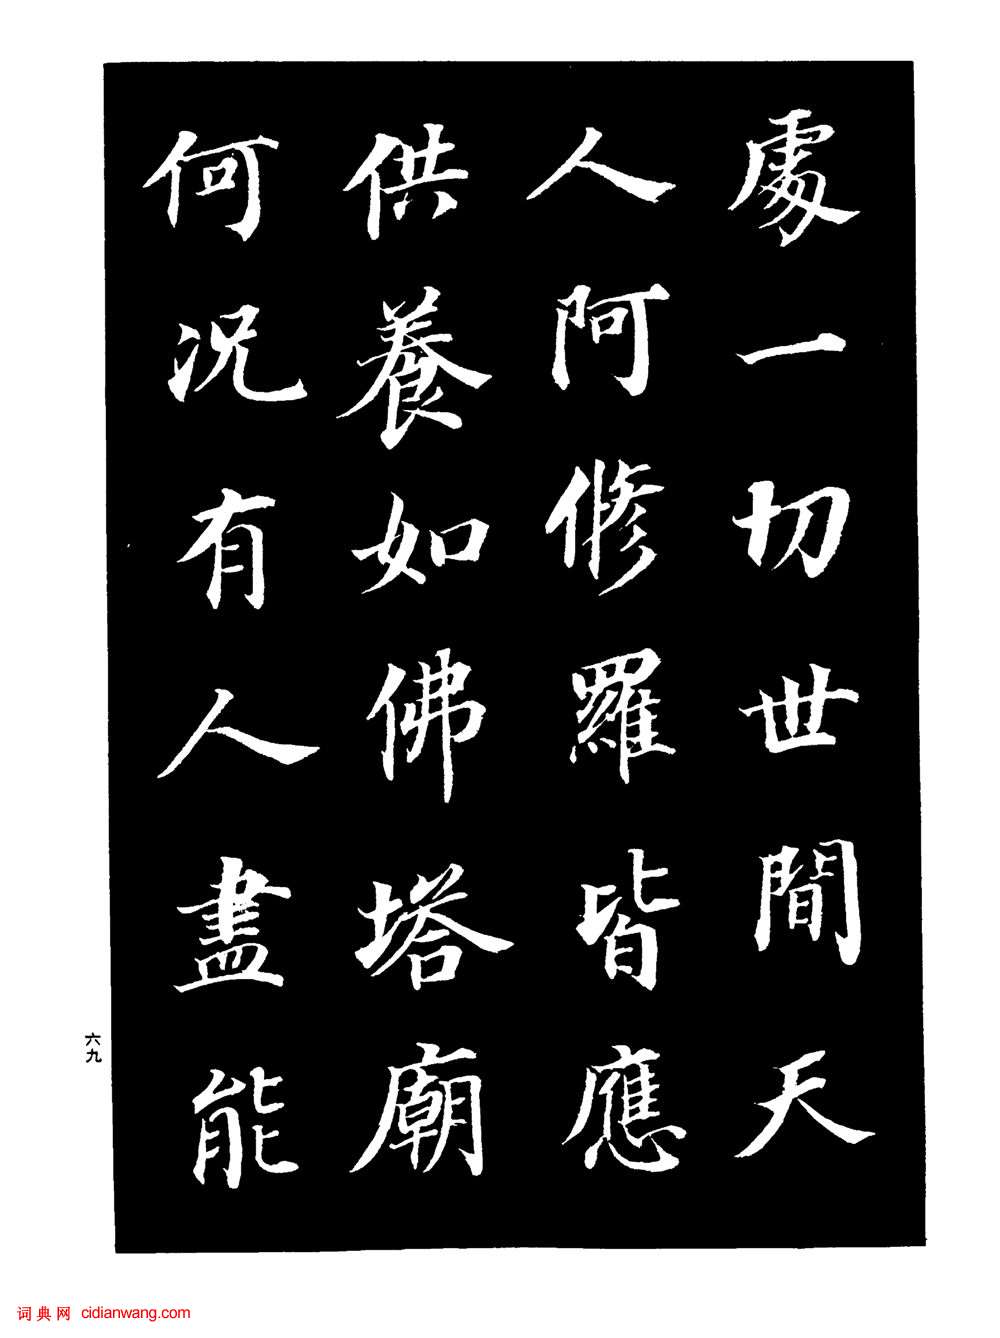 處一切世間天
人阿修羅皆應
供養如佛塔廟
何況有人盡能
六九
词典网 cidianwang.com